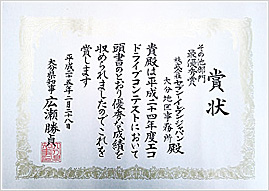 賞状
その他部門
最優秀賞
株式会社
セブン-イレブン・ジャパン殿
大分地区事務所
貴殿は平成二十四年度エコ
ドライブコンテストにおいて
頭書のとおり優秀な成績を
収められましたのでこれを
賞します
平成二十五年二月二十八日
大分県知事 広瀬勝貞